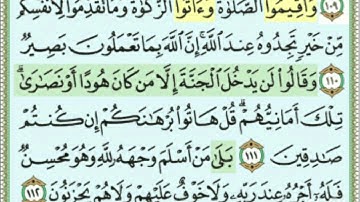 ١٠٩ وَأَقِيمُوا الصَّلَوٰةَ وَءَاتُوا الزَّكَوٰةَ وَمَا تُقَدِّمُوا لِأَنفُسِكُم
مِّنْ خَيْرٍ تَجِدُوهُ عِندَ اللَّهِ إِنَّ اللَّهَ بِمَا تَعْمَلُونَ بَصِيرٌ
١١٠ وَقَالُوا لَن يَدْخُلَ الْجَنَّةَ إِلَّا مَن كَانَ هُودًا أَوْ نَصَٰرَىٰ
تِلْكَ أَمَانِيُّهُمْ قُلْ هَاتُوا بُرْهَٰنَكُمْ إِن كُنتُمْ
صَٰدِقِينَ ١١١ بَلَىٰ مَنْ أَسْلَمَ وَجْهَهُ لِلَّهِ وَهُوَ مُحْسِنٌ
فَلَهُ أَجْرُهُ عِندَ رَبِّهِ وَلَا خَوْفٌ عَلَيْهِمْ وَلَا هُمْ يَحْزَنُونَ ١١٢